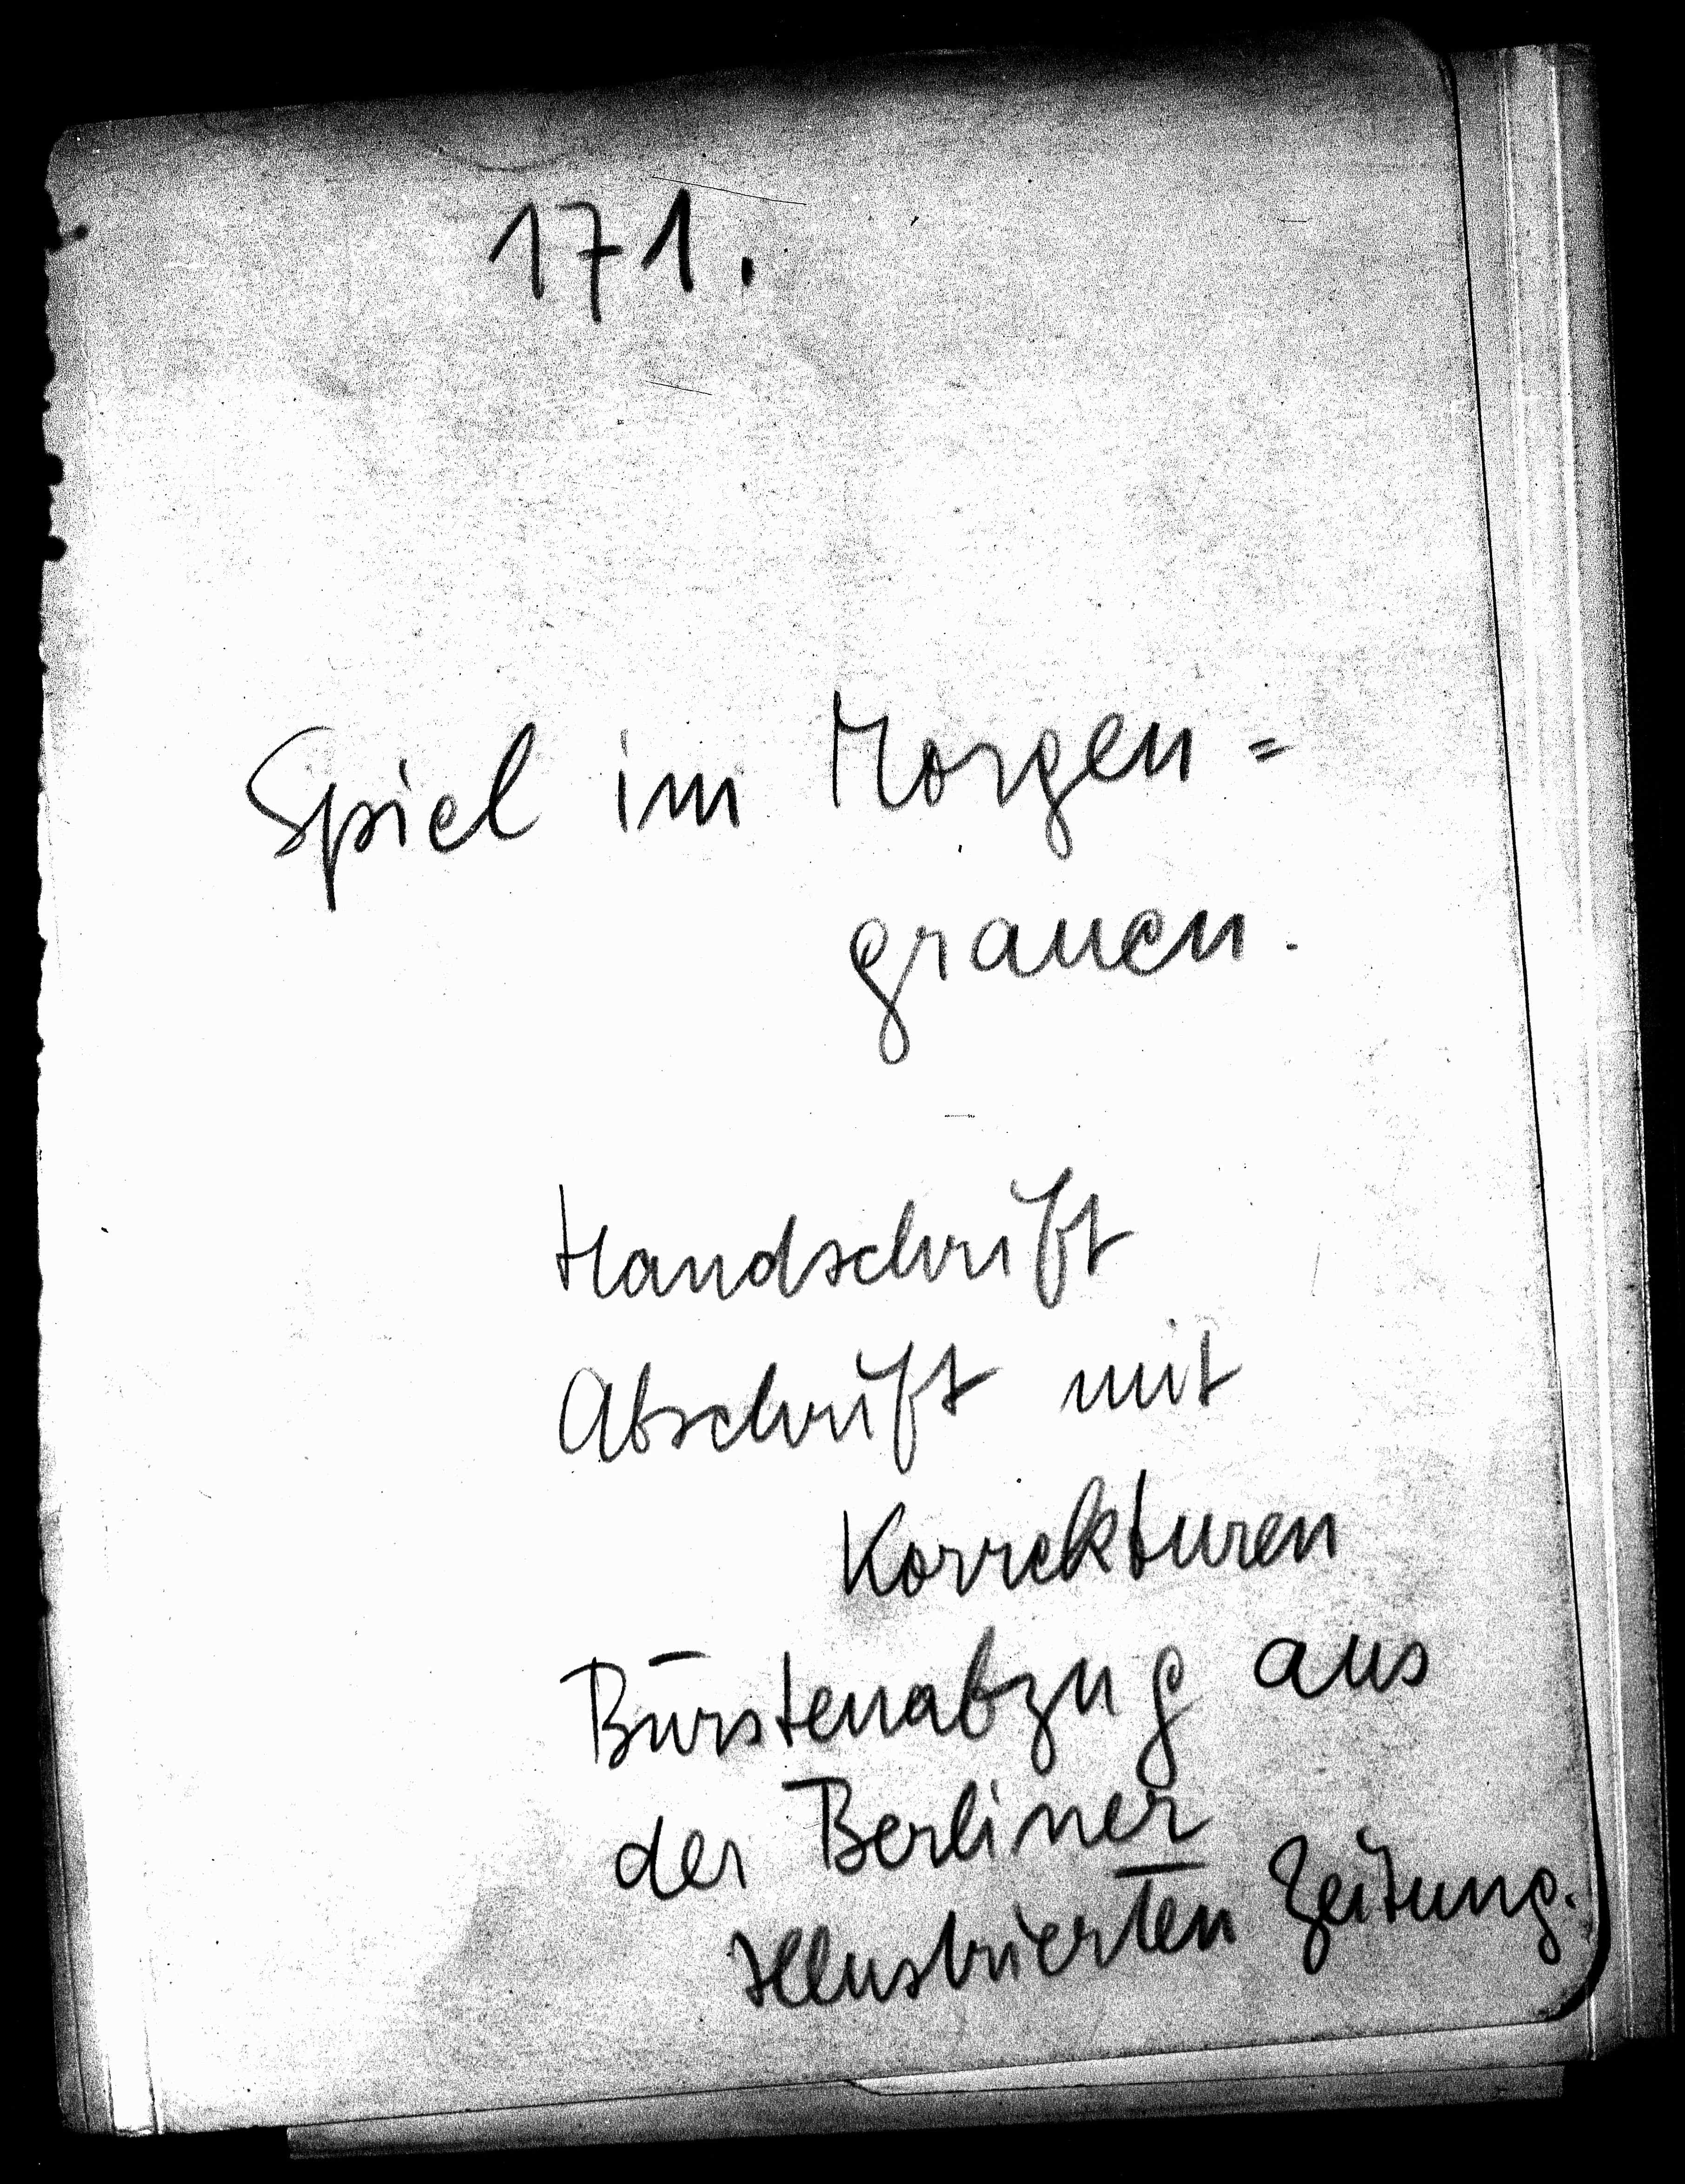 171.
Spiel im Morgen=
grauen.
Handschrift
Abschrift mit
Korrekturen
Bürstenabzug aus
der Berliner
Illustrierten Zeitung.